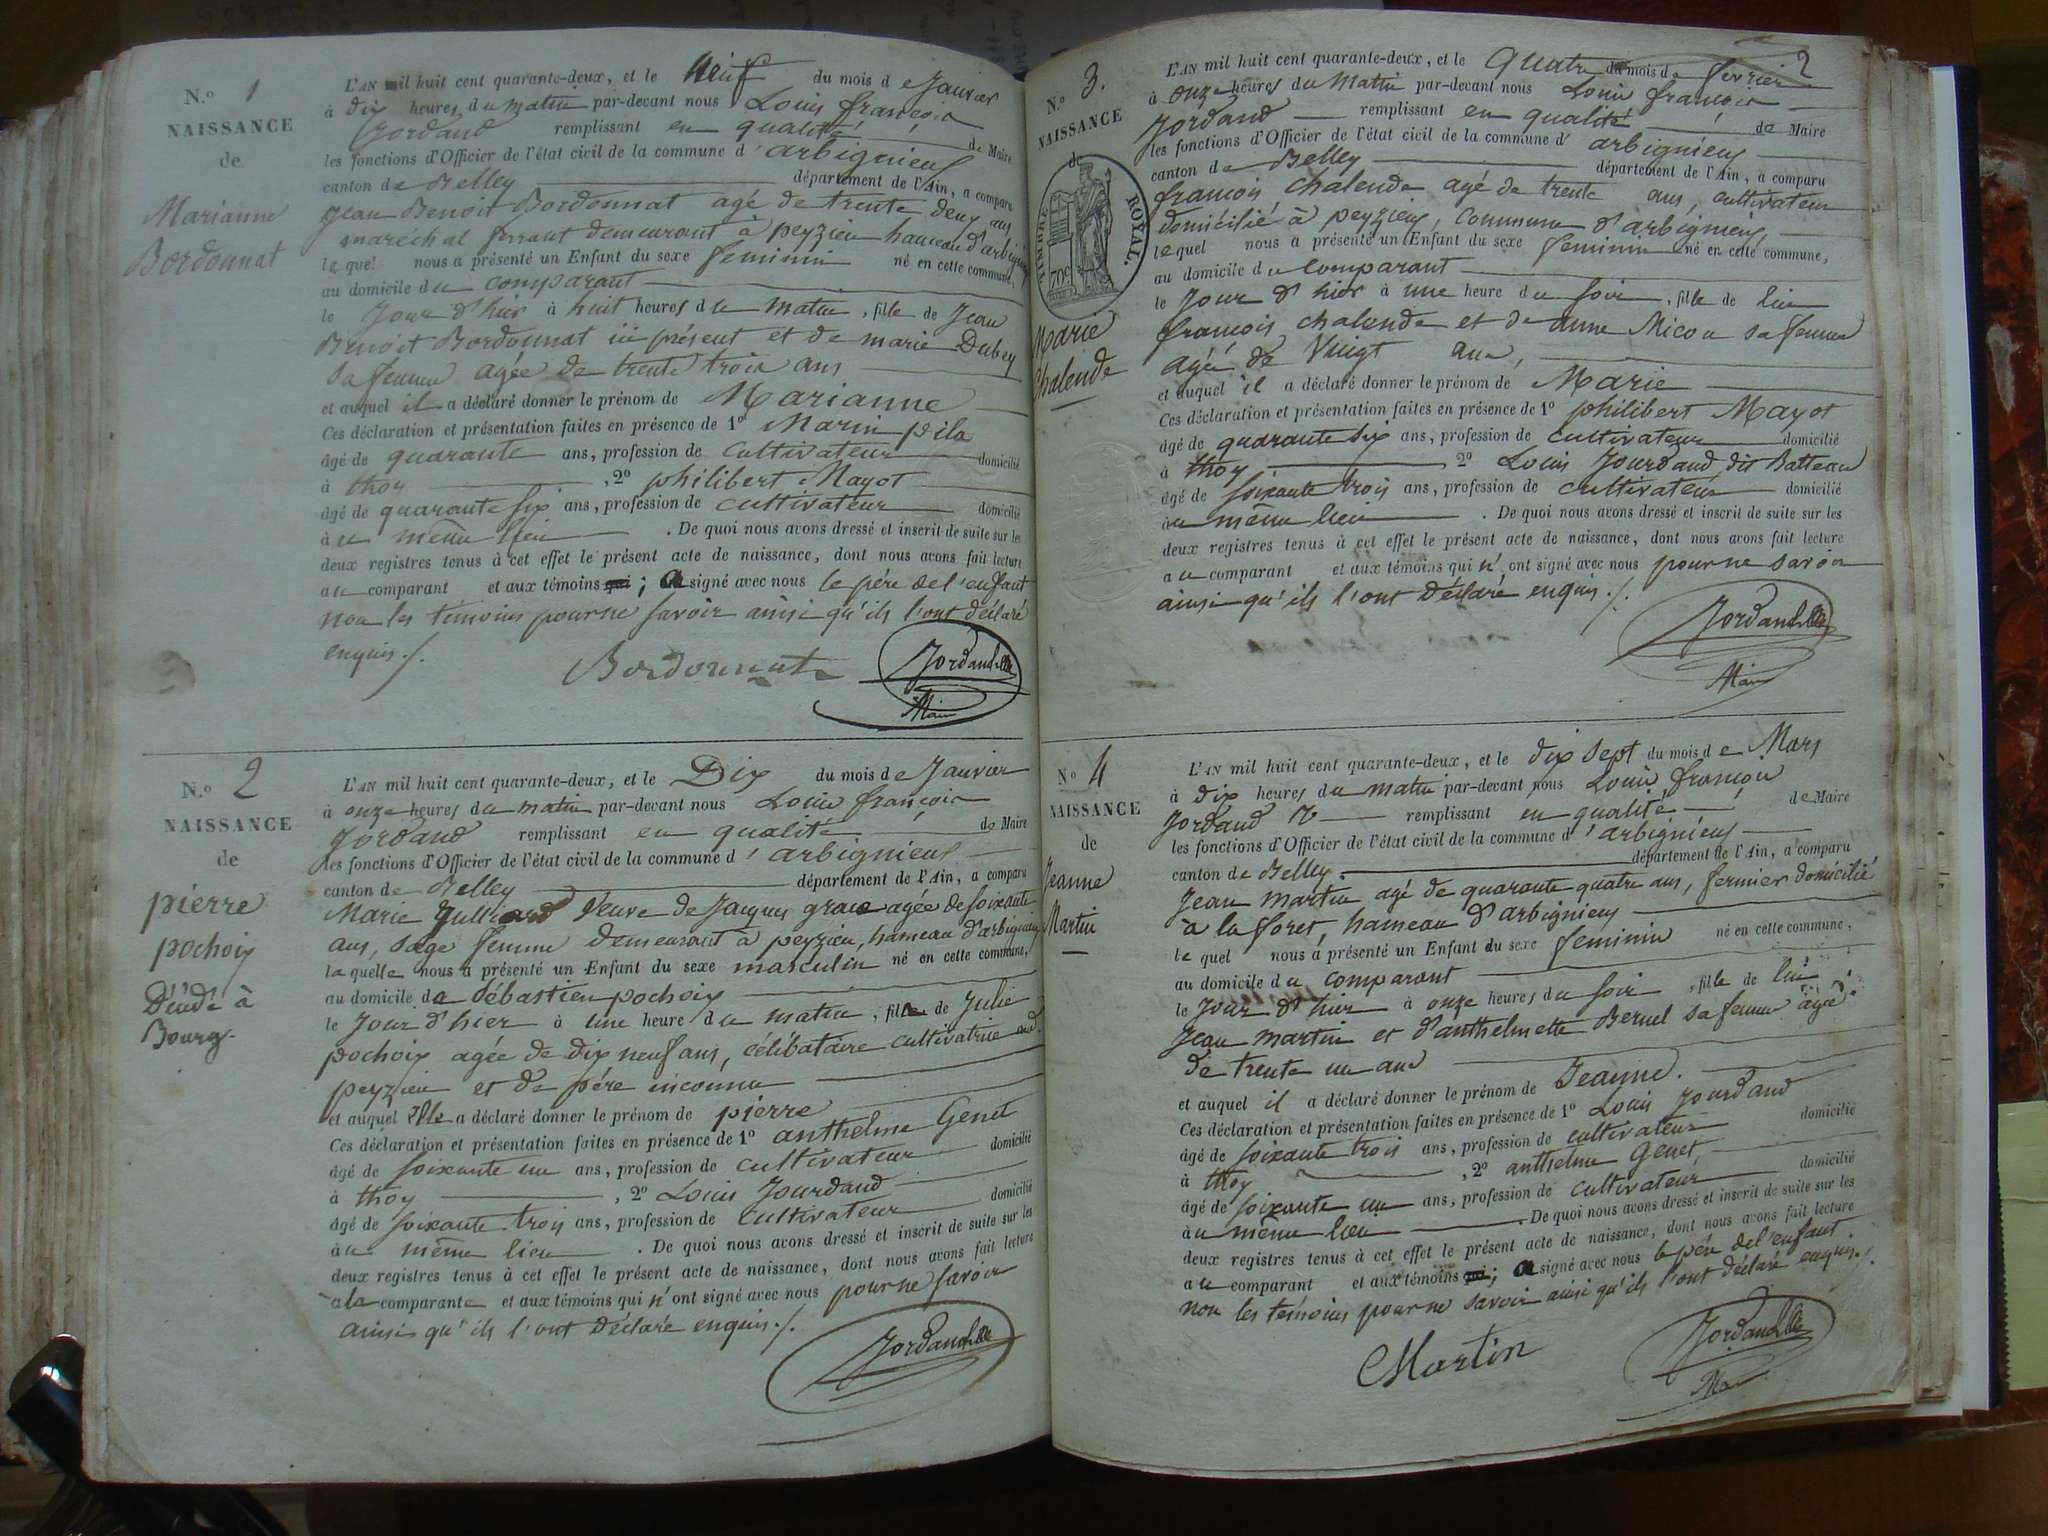 N.o 1
NAISSANCE
de
Marianne
Bordonnat
L'AN mil huit cent quarante-deux, et le neuf du mois de Janvier
à dix heures du matin par-devant nous Louis françois
Jordand remplissant en qualité de Maire
les fonctions d'Officier de l'état civil de la commune d'arbignieu
canton de Belley département de l'Ain, a comparu
Jean Benoit Bordonnat agé de trente deux ans
maréchal ferrant demeurant à peyzieu hameau d'arbignieu
lequel nous a présenté un Enfant du sexe feminin né en cette commune,
au domicile du comparant
le Jour d'hier à huit heures du matin, fille de Jean
Benoit Bordonnat ici présent et de marie Dubey
sa femme agée de trente trois ans
et auquel il a déclaré donner le prénom de Marianne
Ces déclaration et présentation faites en présence de 1o Marin pila
âgé de quarante ans, profession de cultivateur domicilié
à thoy, 2o philibert Mayot
âgé de quarante six ans, profession de cultivateur domicilié
au même lieu. De quoi nous avons dressé et inscrit de suite sur les
deux registres tenus à cet effet le présent acte de naissance, dont nous avons fait lecture
au comparant et aux témoins qui ; a signé avec nous le père de l'enfant
non les témoins pour ne savoir ainsi qu'ils l'ont déclaré
enquis ./.
Bordonnat Jordand
Maire
N.o 2
NAISSANCE
de
pierre
pochoix
Décédé à
Bourg.
L'AN mil huit cent quarante-deux, et le Dix du mois de Janvier
à onze heures du matin par-devant nous Louis françois
Jordand remplissant en qualité de Maire
les fonctions d'Officier de l'état civil de la commune d'arbignieu
canton de Belley département de l'Ain, a comparu
Marie Julliard Veuve de Jacques agée de soixante
ans, sage femme demeurant à peyzieu, hameau d'arbignieu
laquelle nous a présenté un Enfant du sexe masculin né en cette commune,
au domicile de sébastien pochoix
le Jour d'hier à une heure du matin, fils de Julie
pochoix agée de dix neuf ans, célibataire cultivatrice aud.
peyzieu et de père inconnu
et auquel Elle a déclaré donner le prénom de pierre
Ces déclaration et présentation faites en présence de 1o anthelme Genet
âgé de soixante un ans, profession de cultivateur domicilié
à thoy, 2o Louis Jourdand
âgé de soixante trois ans, profession de cultivateur domicilié
au même lieu. De quoi nous avons dressé et inscrit de suite sur les
deux registres tenus à cet effet le présent acte de naissance, dont nous avons fait lecture
à la comparante et aux témoins qui n'ont signé avec nous pour ne savoir
ainsi qu'ils l'ont Déclaré enquis ./.
Jordand
2
N.o 3.
NAISSANCE
de
TIMBRE ROYAL.
70c
Marie
Chalende
L'AN mil huit cent quarante-deux, et le Quatre du mois de fevrier
à onze heures du matin par-devant nous Louis françois
Jordand remplissant en qualité de Maire
les fonctions d'Officier de l'état civil de la commune d'arbignieu
canton de Belley département de l'Ain, a comparu
françois chalende agé de trente ans, cultivateur
domicilié à peyzieu, commune d'arbignieu
lequel nous a présenté un Enfant du sexe feminin né en cette commune,
au domicile du comparant
le Jour d'hier à une heure du soir, fille de lui
françois chalende et de anne Micou sa femme
agée de Vingt ans,
et auquel il a déclaré donner le prénom de Marie
Ces déclaration et présentation faites en présence de 1o philibert Mayot
âgé de quarante six ans, profession de cultivateur domicilié
à thoy, 2o Louis Jourdand dit Batteau
âgé de soixante trois ans, profession de cultivateur domicilié
au même lieu. De quoi nous avons dressé et inscrit de suite sur les
deux registres tenus à cet effet le présent acte de naissance, dont nous avons fait lecture
au comparant et aux témoins qui n'ont signé avec nous pour ne savoir
ainsi qu'ils l'ont Déclaré enquis ./.
Jordand
Maire
No 4
NAISSANCE
de
Jeanne
Martin
L'AN mil huit cent quarante-deux, et le dix sept du mois de Mars
à dix heures du matin par-devant nous Louis françois
Jordand remplissant en qualité de Maire
les fonctions d'Officier de l'état civil de la commune d'arbignieu
canton de Belley département de l'Ain, a comparu
Jean martin agé de quarante quatre ans, fermier domicilié
à la foret, hameau d'arbignieu
lequel nous a présenté un Enfant du sexe féminin né en cette commune,
au domicile du comparant
le Jour d'hier à onze heures du soir, fille de lui
Jean martin et d'anthelmette Bernel sa femme agée
de trente un ans
et auquel il a déclaré donner le prénom de Jeanne.
Ces déclaration et présentation faites en présence de 1o Louis Jourdand
âgé de soixante trois ans, profession de cultivateur domicilié
à thoy, 2o anthelme Genet,
âgé de soixante un ans, profession de cultivateur domicilié
au même lieu. De quoi nous avons dressé et inscrit de suite sur les
deux registres tenus à cet effet le présent acte de naissance, dont nous avons fait lecture
au comparant et aux témoins qui ; a signé avec nous le père de l'enfant
non les témoins pour ne savoir ainsi qu'ils l'ont déclaré enquis ./.
Martin Jordand